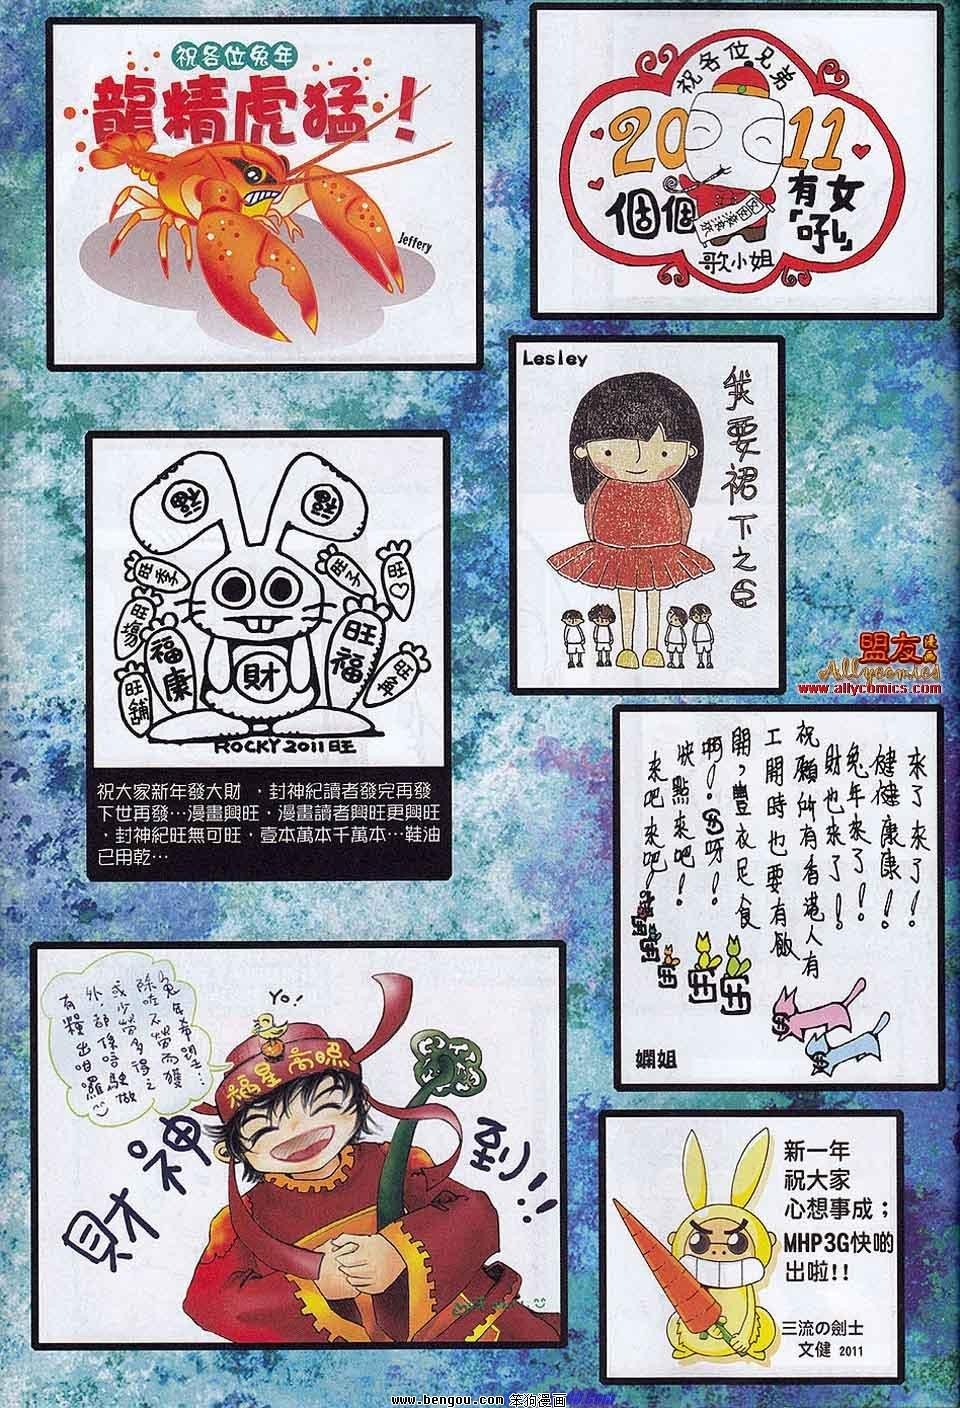 祝各位兔年
龍精虎猛！
Jeffery
祝各位兄弟
2011
個個
有女
「吼」
歌小姐
Lesley
我要裙下之臣
福
福
旺季
旺場
旺舖
福康
財
旺子
旺♡
旺福
ROCKY 2011旺
祝大家新年發大財　．封神紀讀者發完再發
下世再發…漫畫興旺．漫畫讀者興旺更興旺
．封神紀旺無可旺．壹本萬本千萬本…鞋油
已用乾…
盟友
漫画
Allycomics
www.allycomics.com
來了來了！
健健康康！
兔年來了！
財也來了！
祝願所有香港人有
工開時也要有飯
開，豐衣足食
啊！$呀！
快點來吧！
來吧來吧！
嫻姐
兔年希望…
除咗不勞而獲
或少勞多得之
外，都係唔駛做
有糧出咁囉
Yo!
福星高照
財神到!!
新一年
祝大家
心想事成；
MHP3G快啲
出啦!!
三流の劍士
文健 2011
www.bengou.com 笨狗漫画